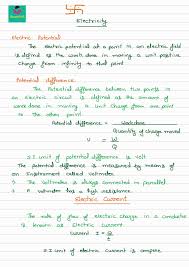 Electricity
Electric Potential
The electric potential at a point in an electric field
is defined as the work done in moving a unit positive
charge from infinity to that point
Potential difference
The Potential difference between two points in
an Electric circuit is defined as the amount of
work done in moving a unit charge from one point
to the other point
Potential difference = Workdone
Quantity of charge moved
V = W
Q
S.I unit of potential difference is volt
The potential difference is measured by means of
an instrument called voltmeter
The voltmeter is always connected in parallel
A voltmeter has a high resistance
Electric Current
The rate of flow of electric charge in a conductor
is known as Electric current.
Current I = Q
t
S.I unit of electric current is ampere